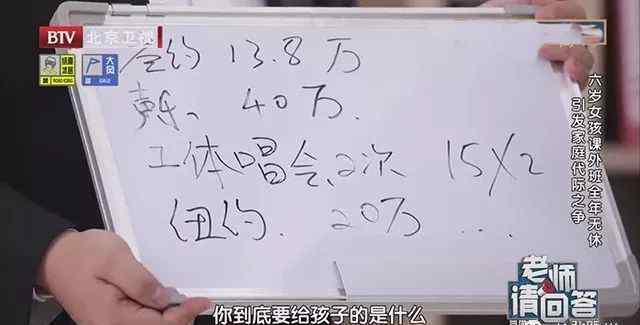 BTV 北京卫视
道路结冰
大风
合约 13.8万
声乐、 40万.
工体唱会、2次 15X2
纽约. 20万...
六岁女孩课外班全年无休
引发家庭代际之争
老师请回答
你到底要给孩子的是什么